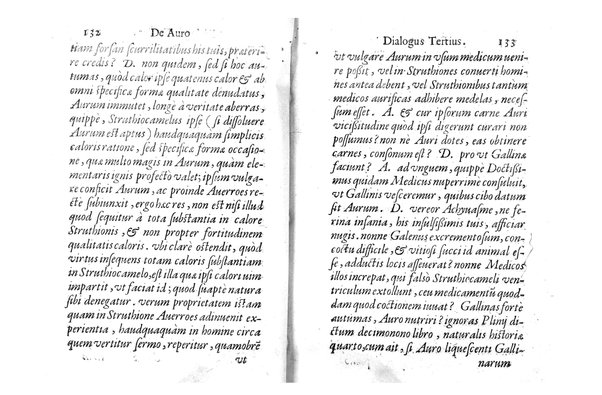 132 De Auro
tiam forsan scurrilitatibus his tuis, præteri-
re credis? D. non quidem, sed si hoc au-
tumas, quòd calor ipse quatenus calor & ab
omni specificæ formæ qualitate denudatus,
Aurum immutet, longè à veritate aberras,
quippe, Struthiocamelus ipse (si dissoluere
Aurum est aptus) haudquaquàm simplicis
caloris ratione, sed specificæ formæ occasio-
ne, quæ multo magis in Aurum, quàm ele-
mentaris ignis profectò valet; ipsum vulga-
re conficit Aurum, ac proinde Auerroes re-
ctè subiunxit, ergo hæc res, non est nisi illud
quod sequitur à tota substantia in calore
Struthionis, & non propter fortitudinem
qualitatis caloris. vbi clarè ostendit, quòd
virtus insequens totam caloris substantiam
in Struthiocamelo, est illa quæ ipsi calori uim
impartit, vt faciat id; quod suaptè natura
sibi denegatur. verum proprietatem istam
quam in Struthione Auerroes adinuenit ex-
perientia, haudquaquàm in homine circa
quem vertitur sermo, reperitur, quamobrē
vt
Dialogus Tertius. 133
vt vulgare Aurum in vsum medicum ueni-
re possit, vel in Struthiones conuerti homi-
nes antea debent, vel Struthionibus tantum
medicos aurificas adhibere medelas, neces-
sum est. A. & cur ipsorum carne Auri
vicissitudine quòd ipsi digerunt curari non
possumus? non nè Auri dotes, eas obtinere
carnes, consonum est? D. pro vt Gallinæ
faciunt? A. ad vnguem, quippè Doctissi-
mus quidam Medicus nuperrimè consuluit,
vt Gallinis vesceremur, quibus cibo datum
sit Aurum. D. vereor Achyuasme, ne fe-
rina insania, his insulsissimis tuis, afficiar
nugis. nonne Galenus excrementosum, con-
coctu difficile, & vitiosi succi id animal es-
se, adductis locis asseuerat? nonne Medicos
illos increpat, qui falsò Struthiocameli ven-
triculum extollunt, ceu medicamentũ quod-
dam quod coctionem iuuat? Gallinas fortè
autumas, Auro nutriri? ignoras Plinij di-
ctum decimonono libro, naturalis historiæ
quarto, cum ait, si Auro liquescenti Galli-
narum